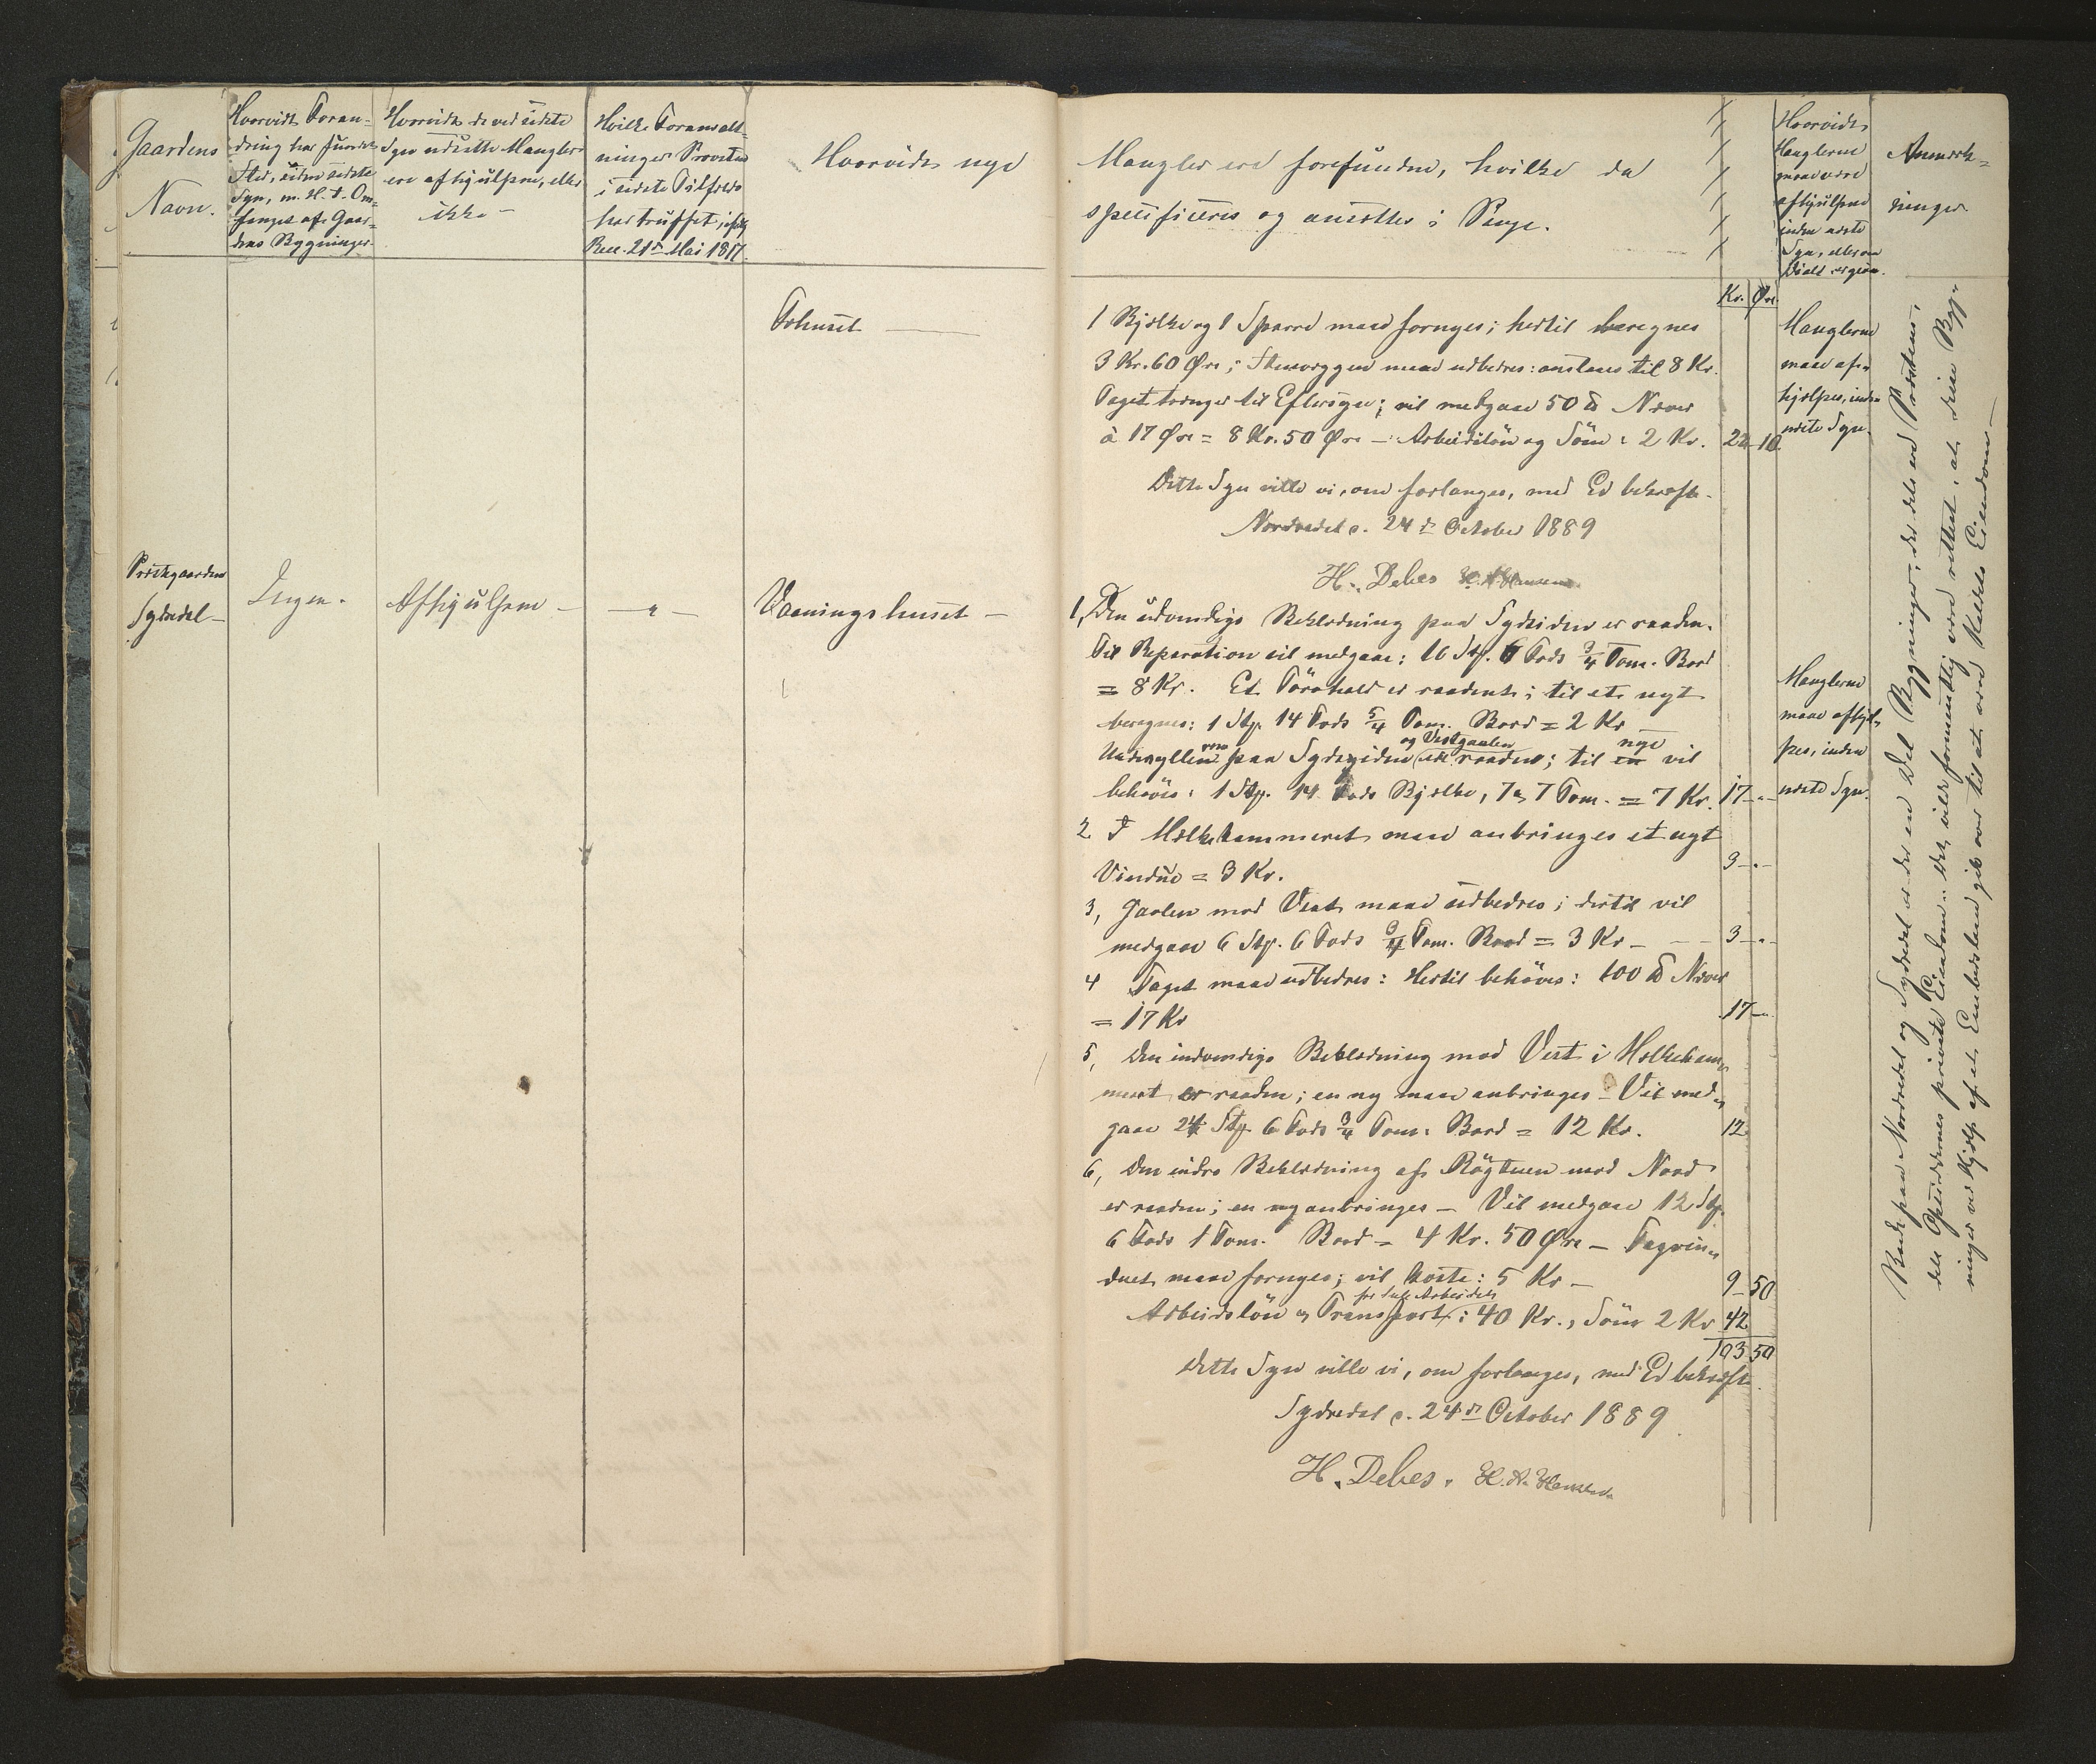 Gaardens
Navn.
Hvorvidt Foran-
dring har fundet
Sted, siden sidste
Syn, m. H. t. Om-
fanget af Gaar-
dens Bygninger.
Hvorvidt de ved sidste
Syn udsatte Mangler
ere afhjulpne, eller
ikke –
Hvilke Foranstalt-
ninger Provsten
i sidste Tilfælde
har truffet, ifølg
Resc. 21de Mai 1817.
Hvorvidt nye
Mangler ere forefundne, hvilke da
specificeres og ansættes i Penge.
Hvorvidt
Manglerne
maa være
afhjulpne
inden næste
Syn, eller om
Anmærk-
ninger.
Fæhuset
Kr. Øre.
1 Bjelke og 1 Sparre maa fornyes; hertil beregnes
3 Kr. 60 Øre; maa udbedres: anslaaes til 8 Kr.
Taget trænger til Eftersyn; vil medgaae 50 ℔ Næver
à 17 Øre = 8 Kr. 50 Øre – Arbeidslön og Söm: 2 Kr. 22 10.
Manglerne
maae af-
hjælpes, inden
næste Syn.
Dette Syn ville vi, om forlanges, med Ed bekræfte.
Nordredal d. 24de October 1889
H. Debes H. A. Hansen
Præstegaarden
Sydredal –
Ingen.
Afhjulpne –
– " –
Vaaningshuset –
1, Den udvendige Beklædning paa Sydsiden er raaden.
Til Reparation vil medgaae: 16 Stp. 6 Fods 3/4 Tom. Bord
= 8 Kr. Et er raadent; til et nyt
beregnes: 1 Stp. 14 Fods 5/4 Tom. Bord = 2 Kr
og Vestgavlen nye
paa Sydsyiden ere raadne; til en vil
behöves: 1 Stp. 14 Fods Bjelke, 7 à 7 Tom. = 7 Kr. 17 - "
Manglerne
maae afhjæl-
pes, inden
næste Syn.
2 I Melkekammeret maa anbringes et nyt
Vindue = 3 Kr. 3 - "
3, Gavlen mod Vest maa udbedres; dertil vil
medgaae 6 Stp. 6 Fods 3/4 Tom. Bord = 3 Kr – 3 - "
4 Taget maa udbedres: Hertil behöves: 100 ℔ Næver
= 17 Kr 17 -
5, Den indvendige Beklædning mod Vest i Melkekam-
meret er raaden; en ny maa anbringes – Vil med-
gaae 24 Stp. 6 Fods 3/4 Tom. Bord = 12 Kr. 12
6, Den indre Beklædning af Rögstuen mod Nord
er raaden; en ny anbringes – Vil medgaae 12 Stp.
6 Fods 1 Tom. Bord = 4 Kr. 50 Øre – Tagvin-
duet maa fornyes; vil koste: 5 Kr – 9 - 50
for hele Arbeidet
Arbeidslön og Transport: 40 Kr., Söm 2 Kr 42
103 50
Dette Syn ville vi, om forlanges, med Ed bekræfte
Sydredal d. 24de October 1889
H. Debes. H. A. Hansen
Baade paa Nordredal og Sydredal er der en Del Bygninger, der dels ere Præstens,
dels Opsiddernes private Eiendom: det vilde formentlig være rettest, at disse Byg-
ninger ved Hjelp af et Embedslaan gik over til at være Kaldets Eiendom –